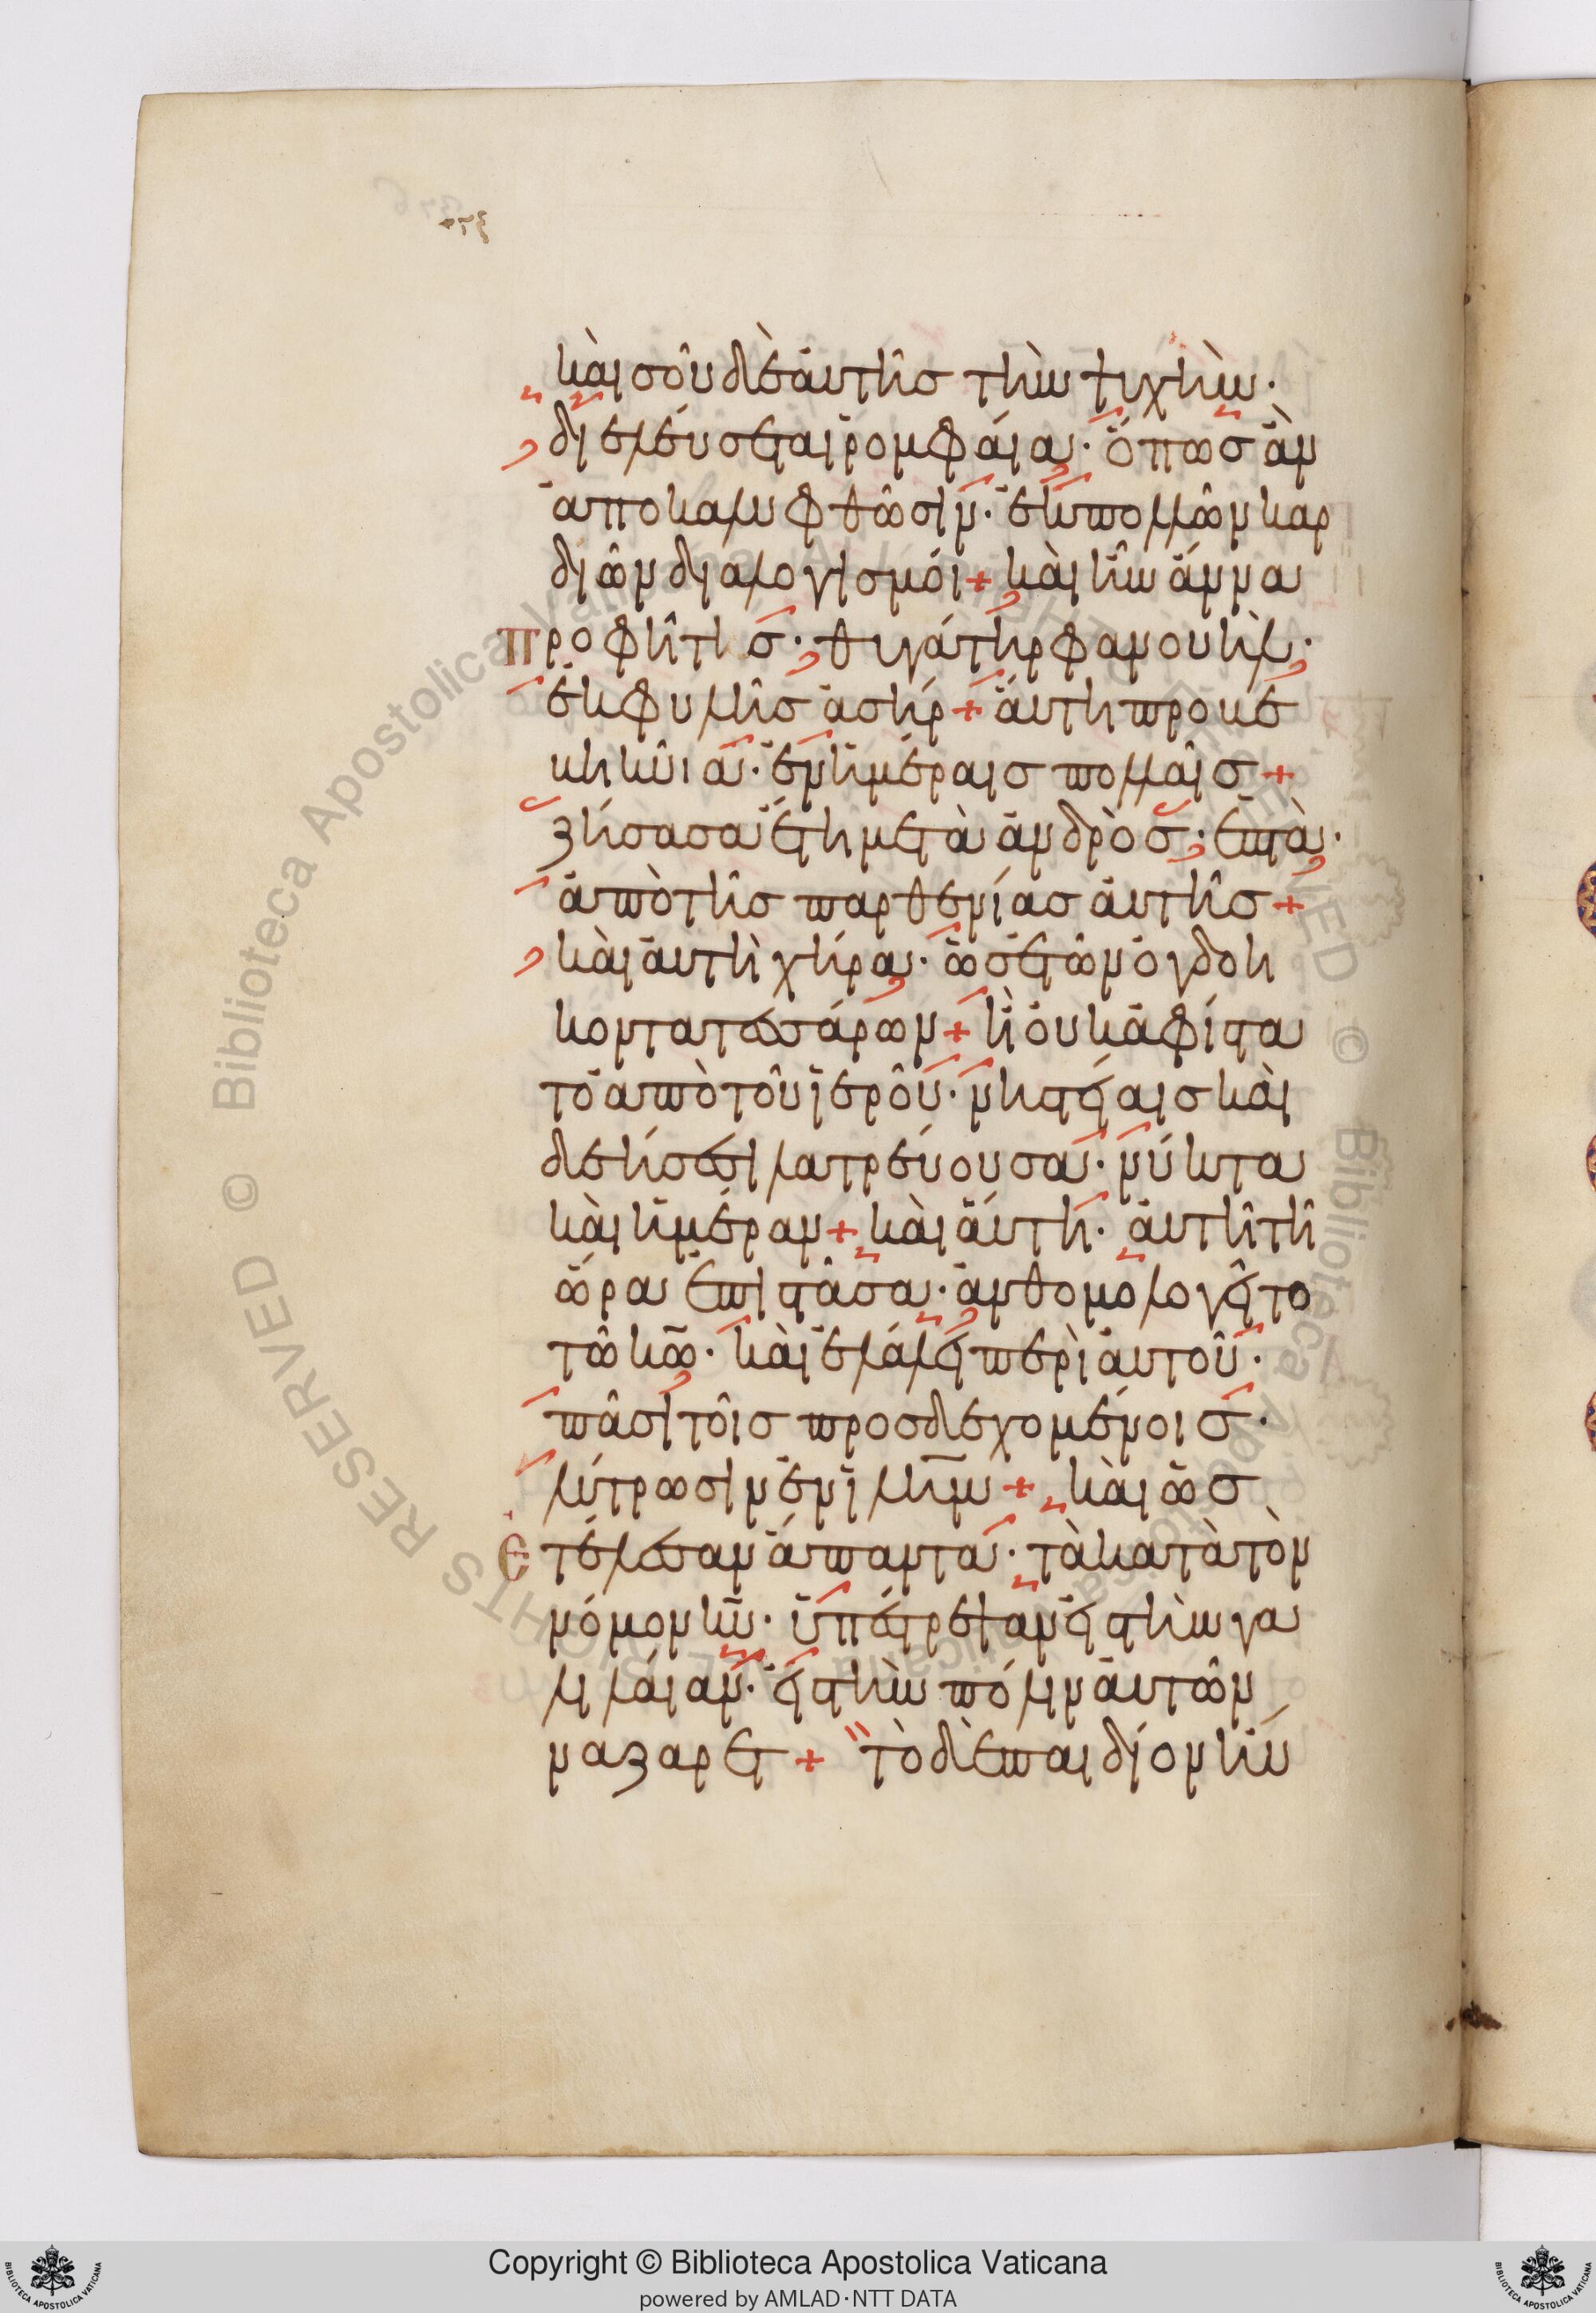 καὶ σοῦ δὲ ἀυτῆσ τὴν ψυχὴν·
διελέυσεται ῥομφάια· ὅπωσ ἂν
ἀποκαλυφθῶσιν· ἐκ πολλῶν καρ
διῶν διαλογισμόι + καὶ ἦν ἄννα
προφῆτισ· θυγάτηρ φανουὴλ·
ἐκ φυλῆσ ἀσήρ + ἅυτη προβε
βηκῦια· ἐν ἡμέραισ πολλᾶισ +
ζήσασα ἔτη μετὰ ἀνδρὸσ· επτὰ·
ἀπὸ τῆσ παρθενίασ ἀυτῆσ +
καὶ ἀυτὴ χήρα· ὡσ ἐτῶν ὀγδοη
κοντατεσσάρων + ἣ ὀυκ ἀφίστα
το ἀπὸ τοῦ ἱεροῦ· νηστείαισ καὶ
δεήσεσι λατρέυουσα· νύκτα
καὶ ἡμέραν + καὶ ἅυτη· ἀυτῆ τῆ
ὥρα ἐπιστᾶσα· ἀνθομολογεῖτο
τῶ κῶ· καὶ ἐλάλει περὶ ἀυτοῦ·
πᾶσι τοῖσ προσδεχομένοισ·
λύτρωσιν ἐν ἰλημ + καὶ ὡσ
ετέλεσαν ἅπαντα· τὰ κατὰ τὸν
νόμον κυ· ὑπέστρεψαν εἰσ τὴν γα
λιλάιαν· εἰσ τὴν πόλιν ἀυτῶν
ναζαρετ + τὸ δὲ παιδίον ηύ
Copyright © Biblioteca Apostolica Vaticana
powered by AMLAD·NTT DATA